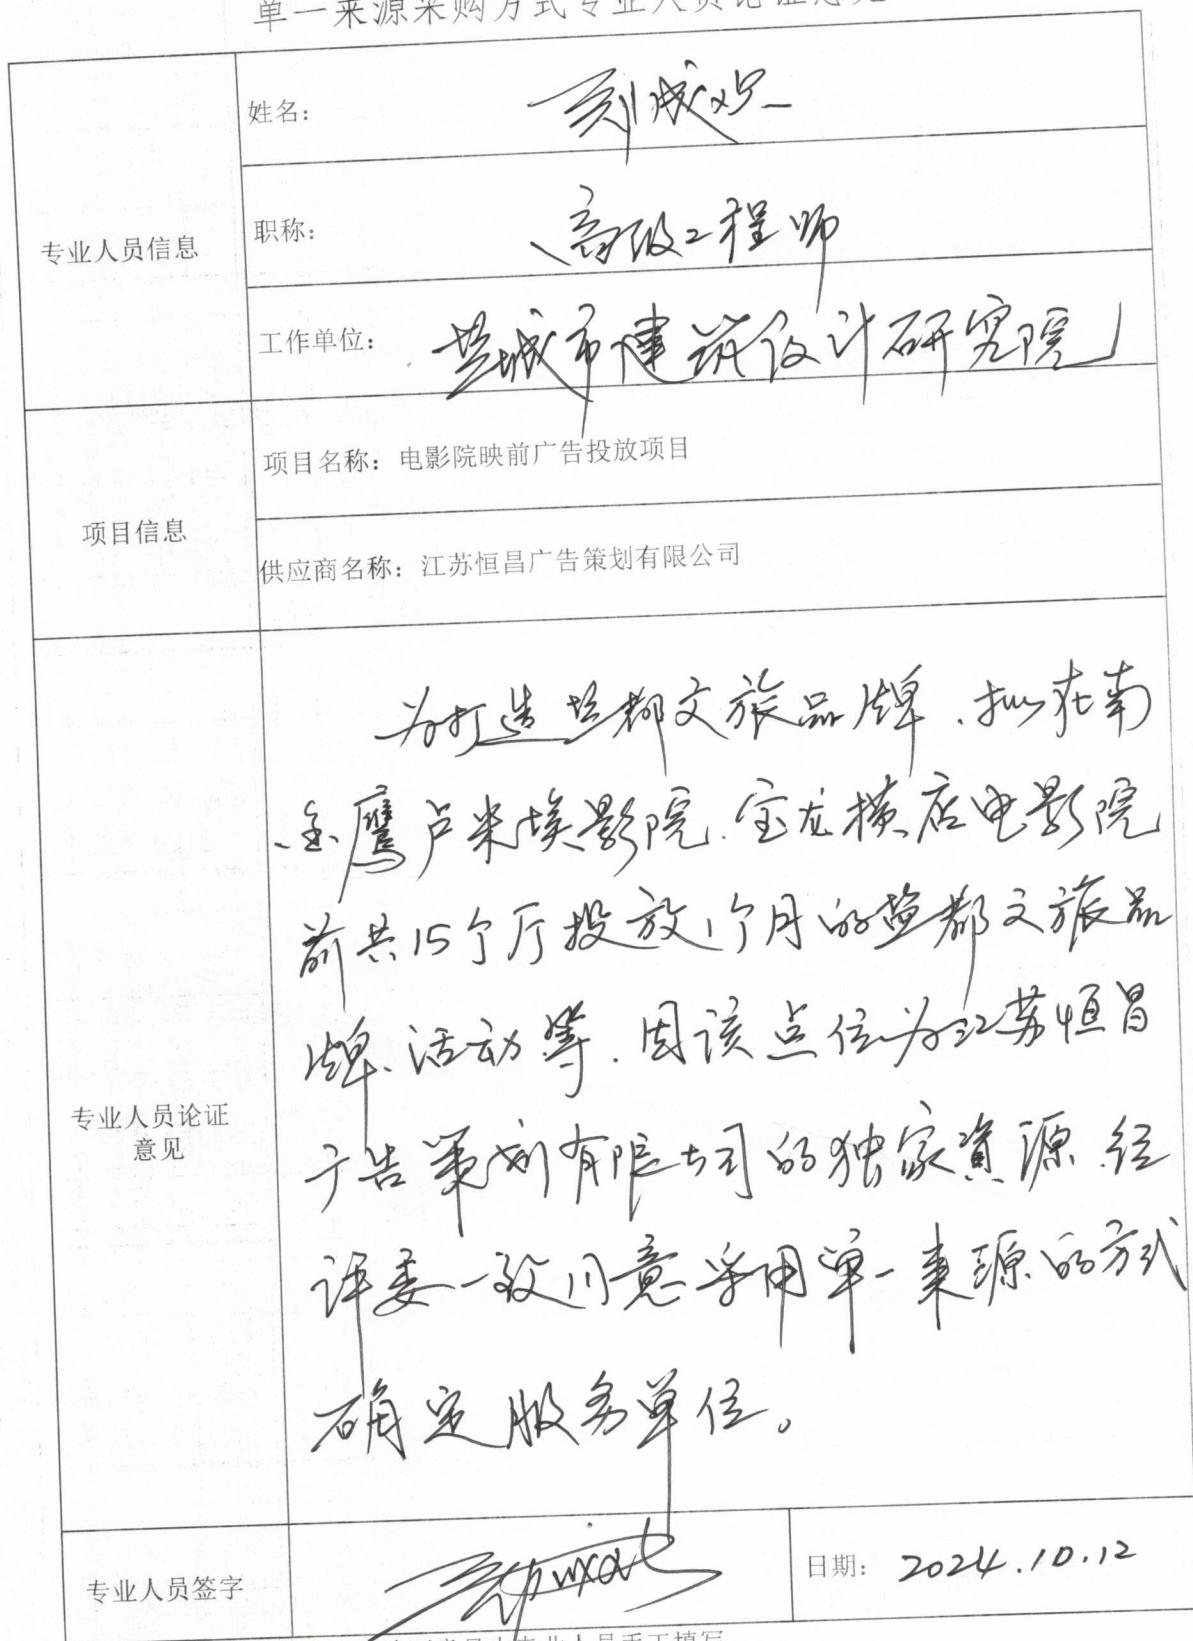 单一来源采购方式专业人员论证意见
专业人员信息
姓名：
职称： 高级工程师
工作单位： 盐城市建筑设计研究院
项目信息
项目名称：电影院映前广告投放项目
供应商名称：江苏恒昌广告策划有限公司
专业人员论证
意见
为打造盐都文旅品牌、拟在南
金鹰卢米埃影院、宝龙横店电影院
前共15个厅投放1个月的盐都文旅品
牌、活动等、因该点位为江苏恒昌
广告策划有限公司的独家資源、经
评委一致同意采用单一来源的方式
确定服务单位。
专业人员签字
日期： 2024.10.12